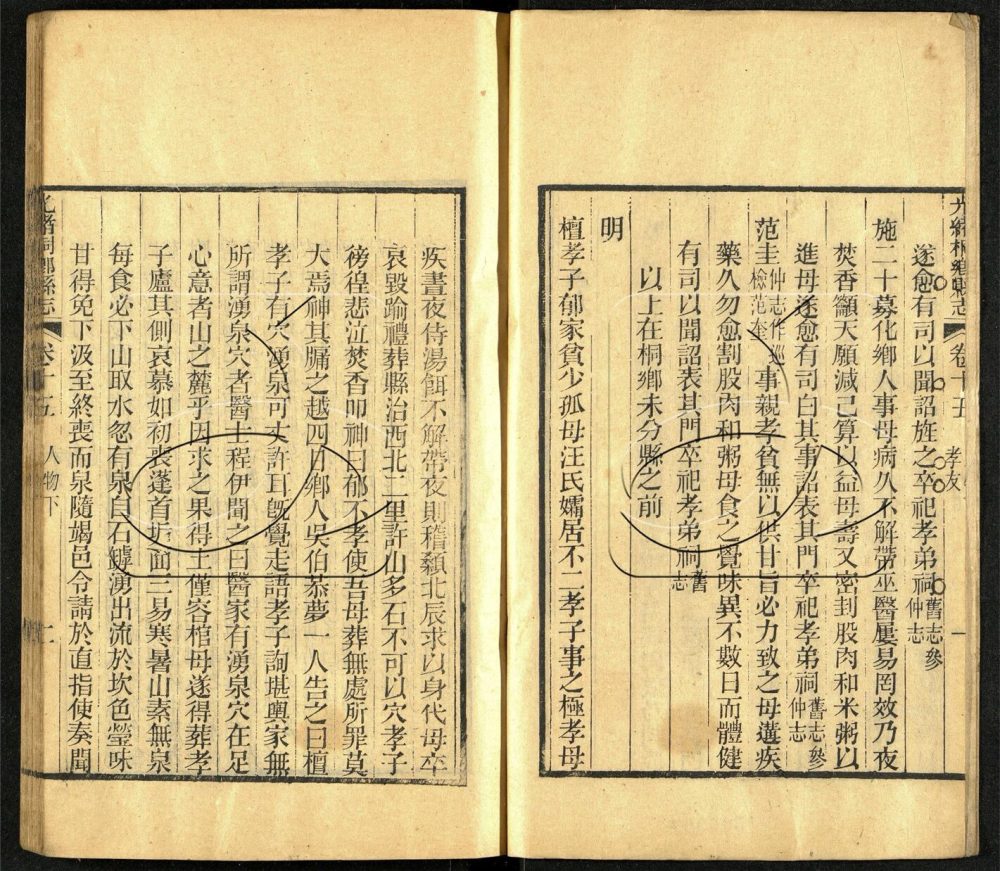 光緒桐鄉縣志 卷十五 孝友 一
遂愈有司以聞詔旌之卒祀孝弟祠舊志參仲志
施二十募化鄉人事母病久不解帶巫醫屢易罔效乃夜
焚香籲天願減己算以益母壽又密封股肉和米粥以
進母遂愈有司白其事詔表其門卒祀孝弟祠舊志參仲志
范圭仲志作巡檢范奎事親孝貧無以供甘旨必力致之母遘疾
藥久勿愈割股肉和粥母食之覺味異不數日而體健
有司以聞詔表其門卒祀孝弟祠舊志
以上在桐鄉未分縣之前
明
檀孝子郁家貧少孤母汪氏孀居不二孝子事之極孝母
疾晝夜侍湯餌不解帶夜則稽顙北辰求以身代母卒
哀毀踰禮葬縣治西北二里許山多石不可以穴孝子
徬徨悲泣焚香叩神曰郁不孝使吾母葬無處所罪莫
大焉神其牖之越四日鄉人吳伯恭夢一人告之曰檀
孝子有穴湧泉可丈許耳旣覺走語孝子詢堪輿家無
所謂湧泉穴者醫士程伊聞之曰醫家有湧泉穴在足
心意者山之麓乎因求之果得土僅容棺母遂得葬孝
子廬其側哀慕如初喪蓬首垢面三易寒暑山素無泉
每食必下山取水忽有泉自石罅湧出流於坎色瑩味
甘得免下汲至終喪而泉隨竭邑令請於直指使奏聞
光緒桐鄉縣志 卷十五 人物下 二